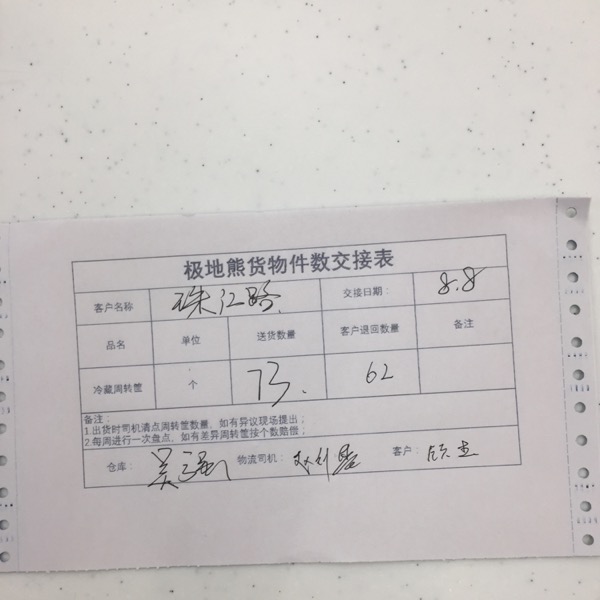 极地熊货物件数交接表
客户名称 珠江路 交接日期: 8.8
品名 单位 送货数量 客户退回数量 备注
冷藏周转筐 个 73. 62
备注:
1.出货时司机清点周转筐数量，如有异议现场提出;
2.每周进行一次盘点，如有差异周转筐按个数赔偿;
仓库: 物流司机: 客户: